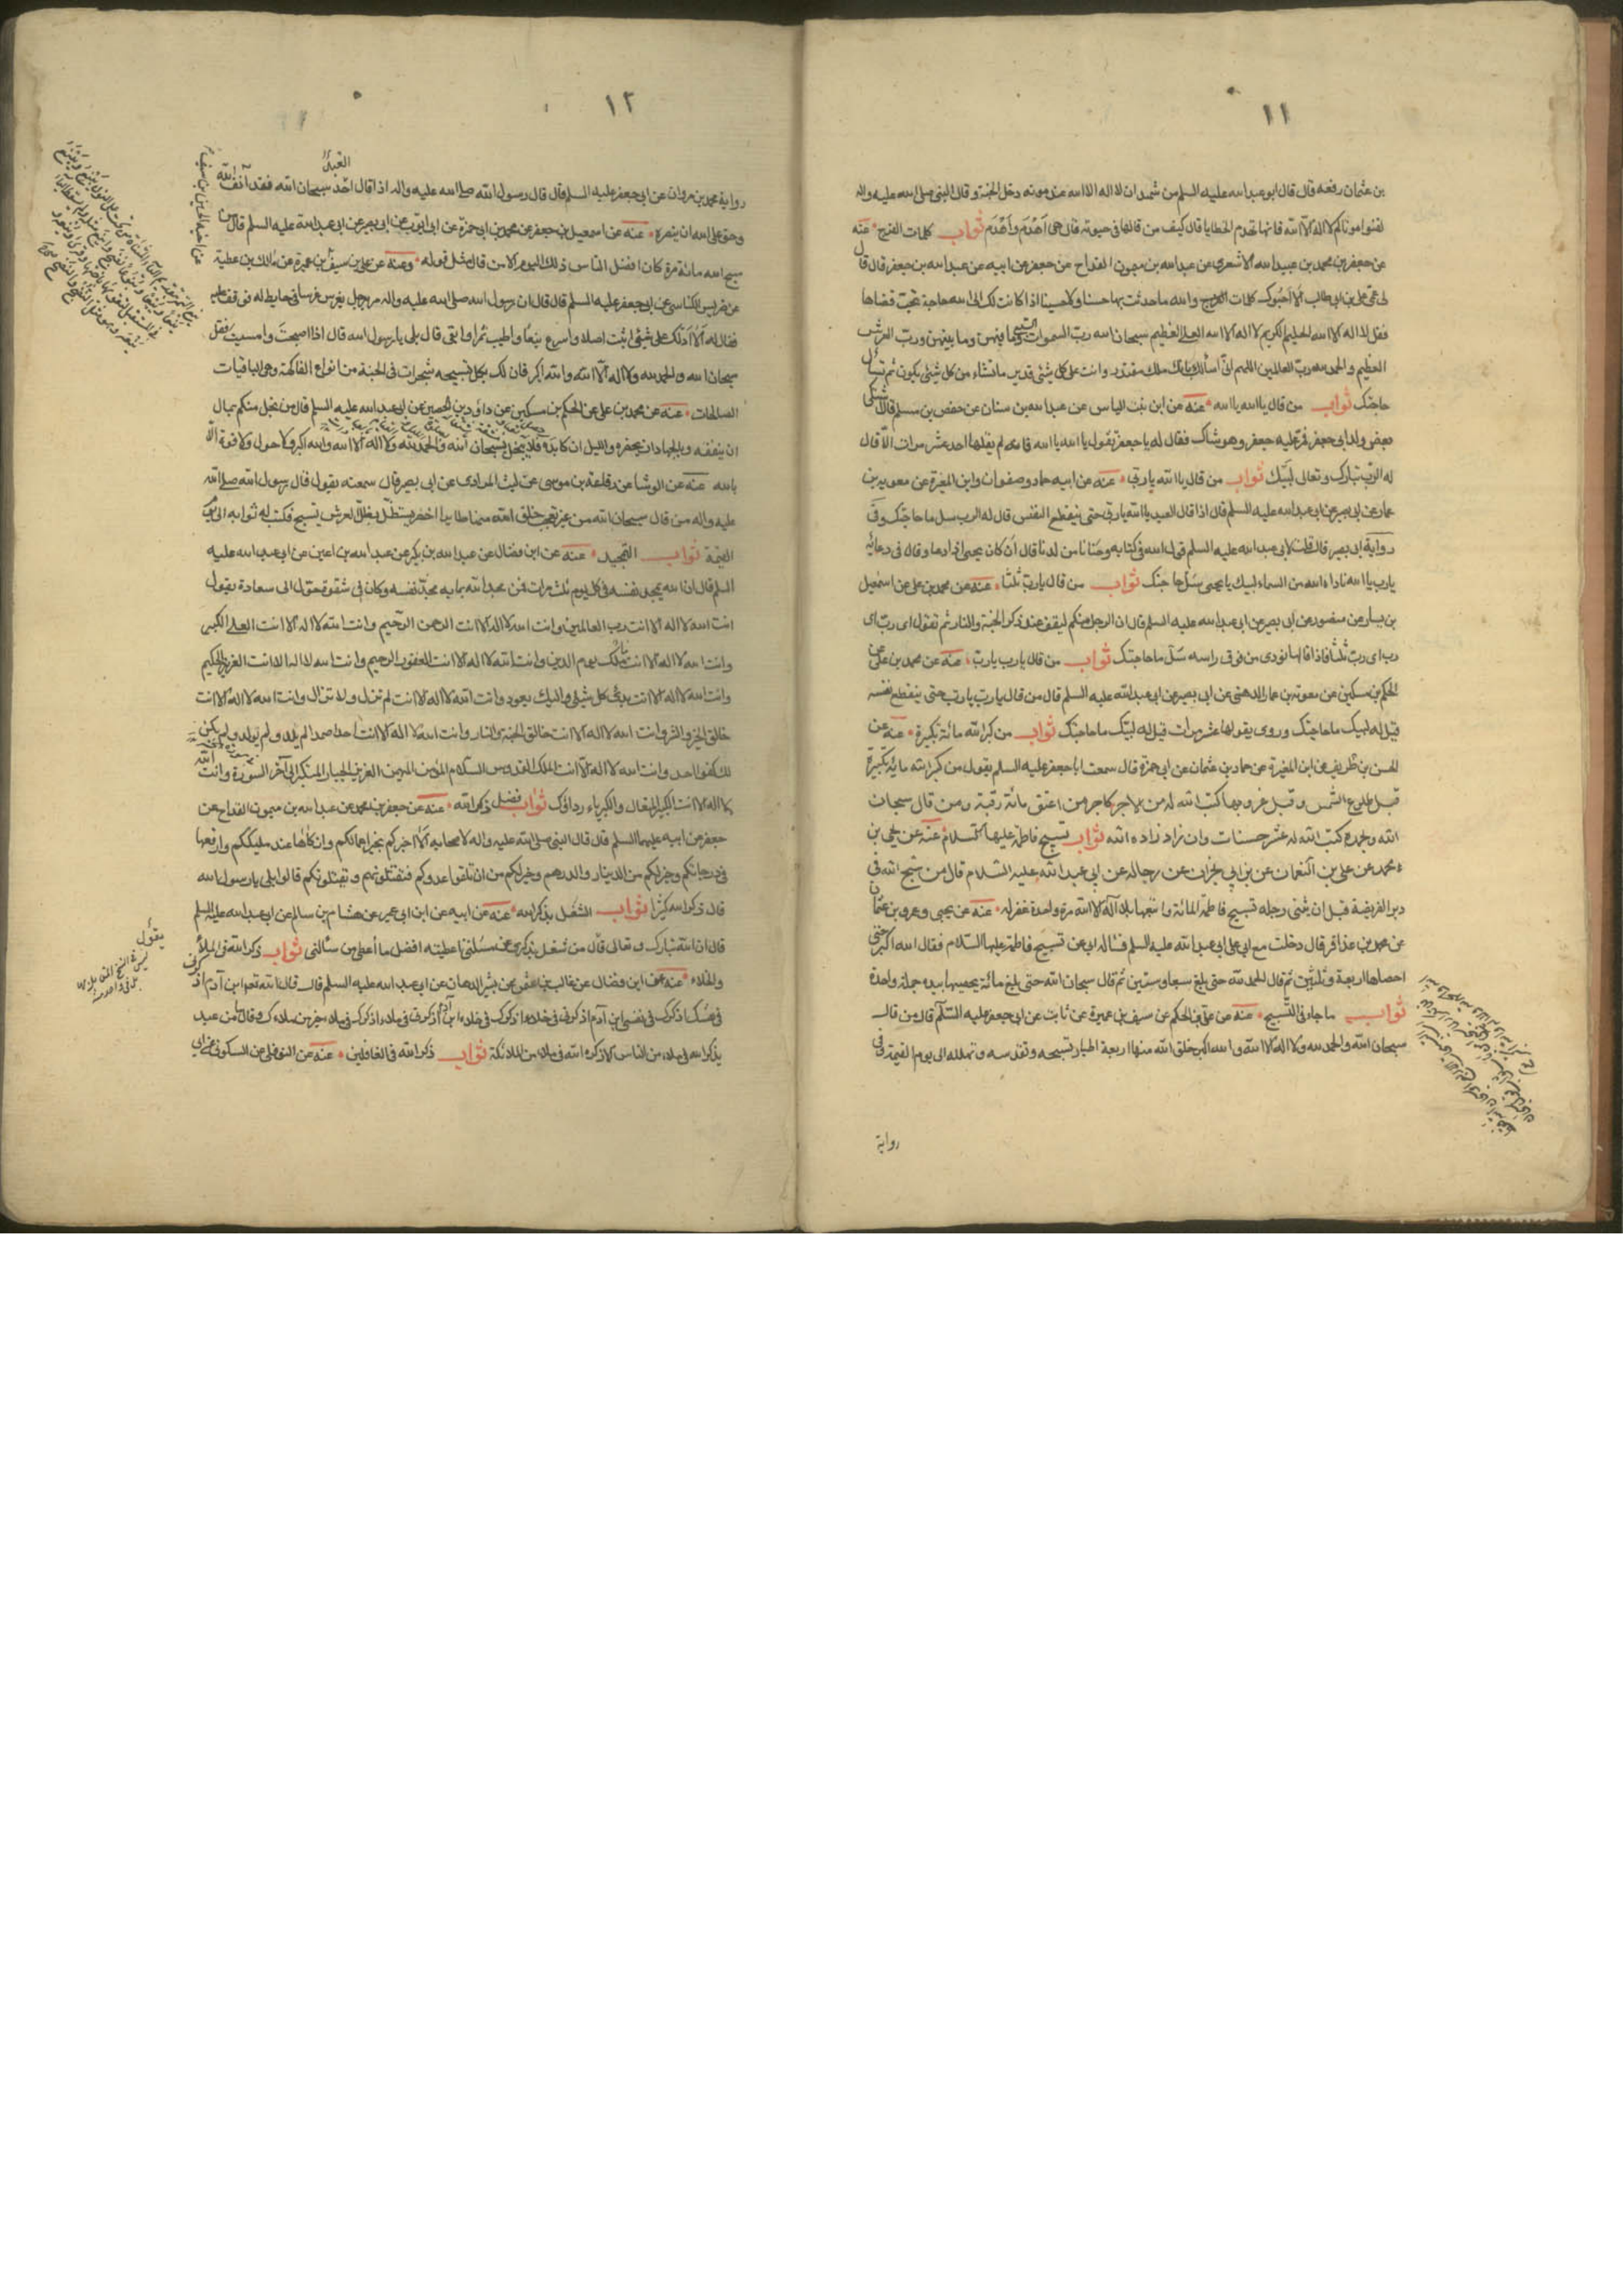 ١١
بن عثمان رفعه قال قال ابو عبد الله عليه السلم من شهد ان لا اله الا الله عند موته دخل الجنة و قال النبي صلى الله عليه واله
لقنوا موتاكم لا اله الا الله فانها تهدم الخطايا قال كيف من قالها فى حيوته قال هى اَهْدَم واَهْدَم ثواب كلمات الفرج عنه
عن جعفر بن محمد بن عبيد الله الاشعرى عن عبد الله بن ميمون القداح عن جعفر عن ابيه عن عبد الله بن جعفر قال قال
لى عمى على بن ابى طالب الا احبوك كلمات والله ما حدثت بها حسنا ولا حسينا اذا كانت لك الى الله حاجة تحب قضاها
فقل لا اله الا الله الحليم الكريم لا اله الا الله العلى العظيم سبحان الله رب السموات السبع وما فيهن وما بينهن ورب العرش
العظيم والحمد لله رب العالمين اللهم انى أسألك بانك ملك مقتدر وانت على كل شئ قدير ما تشاء من كل شئ يكون ثم تسأل
حاجتك ثواب من قال يا الله يا الله عنه عن ابن بنت الياس عن عبد الله بن سنان عن حفص بن مسلم قال اشتكى
بعض ولد ابى جعفر فمر عليه جعفر وهو شاك فقال له يا جعفر تقول يا الله يا الله فانه لم يقلها احد عشر مرات الا قال
له الرب تبارك وتعالى لبيك ثواب من قال يا الله يا ربى عنه عن ابيه حماد وصفوان وابن المغيرة عن معوية بن
عمار عن ابى بصير عن ابى عبد الله عليه السلم قال اذا قال العبد يا الله يا ربى حتى ينقطع النفس قال له الرب سل ما حاجتك وفى
رواية ابى بصير قال قلت لابى عبد الله عليه السلم قول الله فى كتابه وحنانا من لدنا قال ان كان يحيى اذا دعا وقال فى دعائه
يا رب يا الله ناداه الله من السماء لبيك يا يحيى سل حاجتك ثواب من قال يا رب ثلثا عنه عن محمد بن على عن اسمعيل
بن يسار عن منصور عن ابى بصير عن ابى عبد الله عليه السلم قال ان الرجل منكم ليقف عند ذكر الجنة والنار ثم تقول اى رب اى
رب اى رب ثلثا فاذا قالها نودى من فوق راسه سل ما حاجتك ثواب من قال يا رب يا رب عنه عن محمد بن على عن
الحكم بن مسكين عن معوية بن عمار الدهنى عن ابى بصير عن ابى عبد الله عليه السلم قال من قال يا رب يا رب حتى ينقطع نفسه
قيل له لبيك ما حاجتك وروى يقولها عشر مرات قيل له لبيك ما حاجتك ثواب من كبر الله مائة تكبيرة عنه عن
الحسن بن ظريف عن ابن المغيرة عن حماد بن عثمان عن ابى حمزة قال سمعت ابا جعفر عليه السلم يقول من كبر الله مائة تكبيرة
قبل طلوع الشمس وقبل غروبها كتب الله له من الاجر كاجر من اعتق مائة رقبة ومن قال سبحان
الله وبحمده كتب الله له عشر حسنات وان زاد زاده الله ثواب تسبيح فاطمة عليها السلام عنه عن يحيى بن
محمد عن على بن النعمان عن بن ابى نجران عن رجاله عن ابى عبد الله عليه السلام قال من سبح الله فى
دبر الفريضة قبل ان يثنى رجله تسبيح فاطمة المائة واتبعها بلا اله الا الله مرة واحدة غفر له عنه عن يحيى وعمرو بن عثمان
عن محمد بن عذافر قال دخلت مع ابى على ابى عبد الله عليه السلم فسأله ابى عن تسبيح فاطمة عليها السلام فقال الله اكبر حتى
احصاها اربعة وثلثين ثم قال الحمد لله حتى بلغ سبعا وستين ثم قال سبحان الله حتى بلغ مائة يحصيها بيده جملة واحدة
ثواب ما جاء فى التسبيح عنه عن على بن الحكم عن سيف بن عميرة عن ثابت عن ابى جعفر عليه السلام قال من قال
سبحان الله والحمد لله ولا اله الا الله والله اكبر خلق الله منها اربعة اطيار تسبحه وتقدسه وتهلله الى يوم القيمة وفى
رواية
١٢
رواية محمد بن مروان عن ابى جعفر عليه السلم قال قال رسول الله صلى الله عليه واله اذا قال احد سبحان الله فقد انف لله
العبد
وحق على الله ان ينصره عنه عن اسمعيل بن جعفر عن محمد بن ابى حمزة عن ابى ايوب عن ابى بصير عن ابى عبد الله عليه السلم قال من
سبح الله مائة مرة كان افضل الناس ذلك اليوم الا من قال مثل قوله وعنه عن على بن سيف بن عميرة عن مالك بن عطية
عن ضريس الكناسى عن ابى جعفر عليه السلم قال قال ان رسول الله صلى الله عليه واله مر برجل يغرس غرسا فى حايط له فوقف عليه
فقال له الا ادلك على شئ اثبت اصلا واسرع ينعا واطيب ثمرا وابقى قال بلى يا رسول الله قال اذا اصبحت وامسيت فقل
سبحان الله والحمد لله ولا اله الا الله والله اكبر فان لك بكل تسبيحه شجرات فى الجنة من انواع الفاكهة وهى الباقيات
الصالحات عنه عن محمد بن على عن الحكم بن مسكين عن داود بن الحصين عن ابى عبد الله عليه السلم قال من بخل منكم بمال
ان ينفقه وبالجهاد ان يحضره والليل ان كابده فلا يبخل بسبحان الله والحمد لله ولا اله الا الله والله اكبر ولا حول ولا قوة الا
بالله عنه عن الوشا عن رفاعة بن موسى عن ليث المرادى عن ابى بصير قال سمعته يقول قال رسول الله صلى الله
عليه واله من قال سبحان الله من غير تعجب خلق الله منها طايرا اخضر يستظل بظل العرش يسبح فكتب له ثوابه الى يوم
القيمة ثواب التمجيد عنه عن ابن فضال عن عبد الله بن بكير عن عبد الله بن اعين عن ابى عبد الله عليه
السلم قال ان الله يمجد نفسه فى كل يوم ثلث مرات فمن مجد الله بما به مجد نفسه وكان فى شقوة حول الى سعادة يقول
انت الله لا اله الا انت رب العالمين وانت الله لا اله الا انت الرحمن الرحيم وانت الله لا اله الا انت العلى الكبير
وانت الله لا اله الا انت مالك يوم الدين وانت الله لا اله الا انت الغفور الرحيم وانت الله لا اله الا انت العزيز الحكيم
وانت الله لا اله الا انت بدئ كل شئ واليك يعود وانت الله لا اله الا انت لم تزل ولا تزال وانت الله لا اله الا انت
خالق الخير والشر وانت الله لا اله الا انت خالق الجنة والنار وانت الله لا اله الا انت احد صمد لم يلد ولم يولد ولم يكن
لك كفوا احد وانت الله لا اله الا انت الملك القدوس السلام المؤمن المهيمن العزيز الجبار المتكبر الى آخر السورة وانت الله
لا اله الا انت الكبير المتعال والكبرياء رداؤك ثواب فضل ذكر الله عنه عن جعفر بن محمد عن عبد الله بن ميمون القداح عن
جعفر عن ابيه عليهما السلم قال قال النبى صلى الله عليه واله لاصحابه الا اخبركم بخير اعمالكم وازكاها عند مليككم وارفعها
فى درجاتكم وخير لكم من الدينار والدرهم وخير لكم من ان تلقوا عدوكم فتقتلونهم ويقتلونكم قالوا بلى يا رسول الله
قال ذكر الله كثيرا ثواب الشغل بذكر الله عنه عن ابيه عن ابن ابى عمير عن هشام بن سالم عن ابى عبد الله عليه السلم
قال ان الله تبارك وتعالى قال من شغل بذكرى عن مسئلتى اعطيته افضل ما اعطى من سألنى ثواب ذكر الله فى الملأ
والخلاء عنه عن ابن فضال عن غالب بن عثمن عن بشير الدهان عن ابى عبد الله عليه السلم قال قال الله تعم ابن آدم اذكرنى
فى نفسك اذكرك فى نفسى ابن آدم اذكرنى فى خلاء اذكرك فى خلاء ابن آدم اذكرنى فى ملاء اذكرك فى ملاء خير من ملاءك وقال ما من عبد
يذكر الله فى ملاء من الناس الا ذكره الله فى ملاء من الملائكة ثواب ذكر الله فى الغافلين عنه عن النوفلى عن السكونى عن ابى
يقول